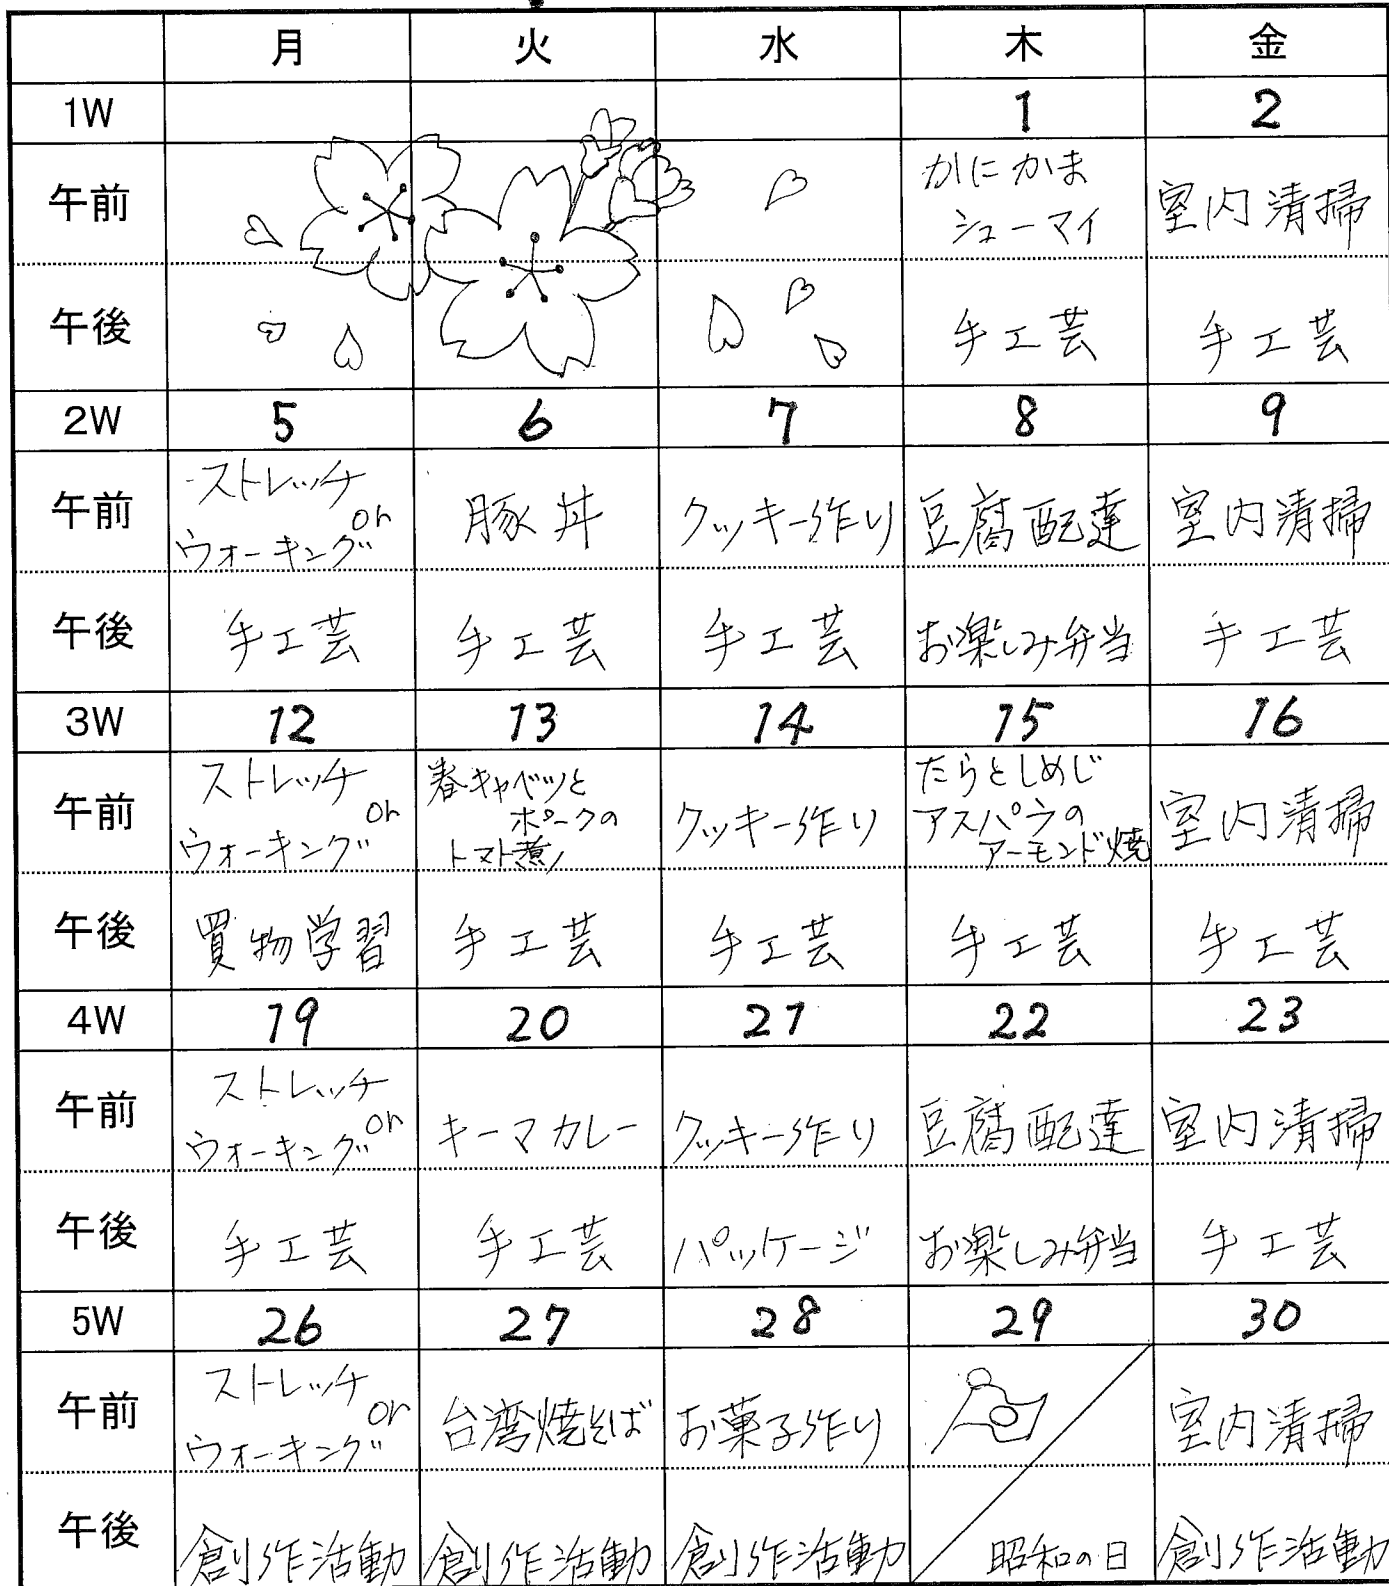 月 火 水 木 金
1W 1 2
午前
かにかま
シューマイ
室内清掃
午後 手工芸 手工芸
2W 5 6 7 8 9
午前
ストレッチ
or
ウォーキング
豚丼
クッキー作り
豆腐配達
室内清掃
午後 手工芸 手工芸 手工芸 お楽しみ弁当 手工芸
3W 12 13 14 15 16
午前
ストレッチ
or
ウォーキング
春キャベツと
ポークの
トマト煮
クッキー作り
たらとしめじ
アスパラの
アーモンド焼
室内清掃
午後 買物学習 手工芸 手工芸 手工芸 手工芸
4W 19 20 21 22 23
午前
ストレッチ
or
ウォーキング
キーマカレー
クッキー作り
豆腐配達
室内清掃
午後 手工芸 手工芸 パッケージ お楽しみ弁当 手工芸
5W 26 27 28 29 30
午前
ストレッチ
or
ウォーキング
台湾焼そば
お菓子作り
室内清掃
午後 創作活動 創作活動 創作活動 昭和の日 創作活動